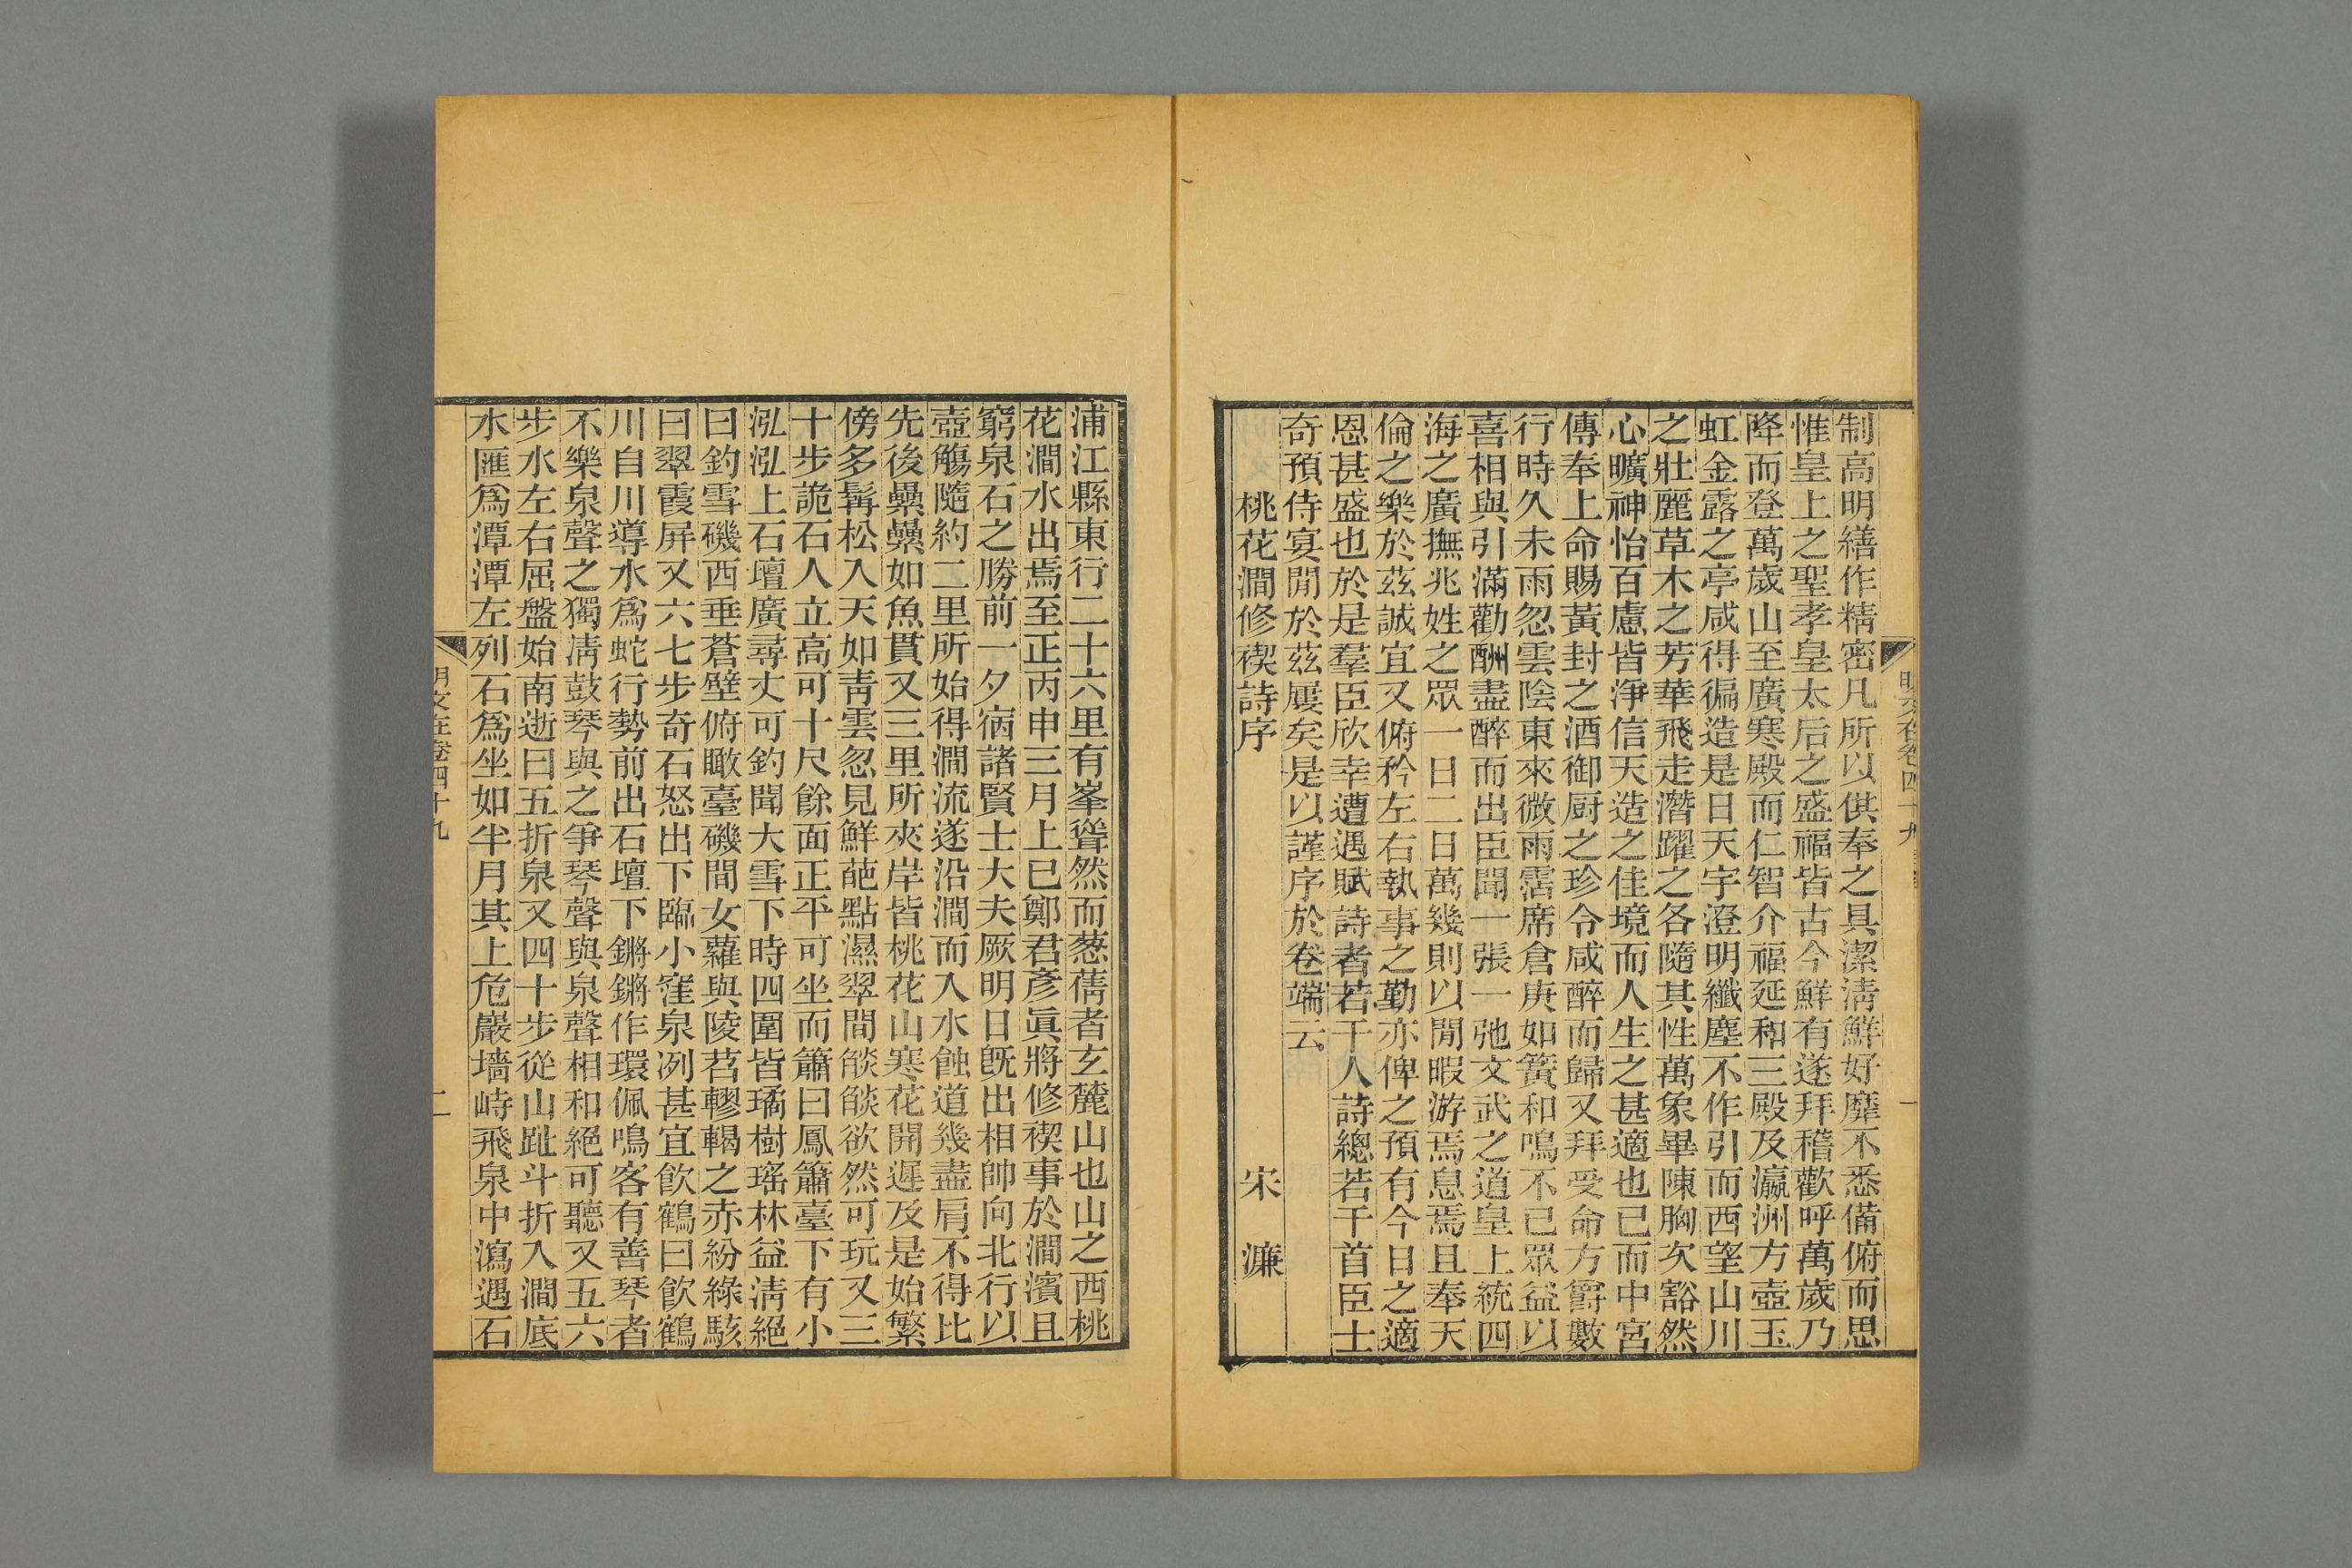 制高明繕作精密凡所以供奉之具潔淸鮮好靡不悉備俯而思
惟皇上之聖孝皇太后之盛福皆古今鮮有遂拜稽歡呼萬歲乃
降而登萬歲山至廣寒殿而仁智介福延和三殿及瀛洲方壺玉
虹金露之亭咸得徧造是日天宇澄明纖塵不作引而西望山川
之壯麗草木之芳華飛走潛躍之各隨其性萬象畢陳胸次豁然
心曠神怡百慮皆淨信天造之佳境而人生之甚適也已而中宮
傳奉上命賜黃封之酒御厨之珍令咸醉而歸又拜受命方爵數
行時久未雨忽雲陰東來微雨霑席倉庚如簧和鳴不已眾益以
喜相與引滿勸酬盡醉而出臣聞一張一弛文武之道皇上統四
海之廣撫兆姓之眾一日二日萬幾則以閒暇游焉息焉且奉天
倫之樂於茲誠宜又俯矜左右執事之勤亦俾之預有今日之適
恩甚盛也於是羣臣欣幸遭遇賦詩者若干人詩總若干首臣士
奇預侍宴閒於茲屢矣是以謹序於卷端云
桃花澗修禊詩序 宋濂
浦江縣東行二十六里有峯聳然而葱蒨者玄麓山也山之西桃
花澗水出焉至正丙申三月上巳鄭君彥眞將修禊事於澗濱且
窮泉石之勝前一夕宿諸賢士大夫厥明日旣出相帥向北行以
壺觴隨約二里所始得澗流遂沿澗而入水蝕道幾盡肩不得比
先後纍纍如魚貫又三里所夾岸皆桃花山寒花開遲及是始繁
傍多髯松入天如靑雲忽見鮮葩點濕翠間燄燄欲然可玩又三
十步詭石人立高可十尺餘面正平可坐而簫曰鳳簫臺下有小
泓泓上石壇廣尋丈可釣聞大雪下時四圍皆璚樹瑤林益淸絕
曰釣雪磯西垂蒼壁俯瞰臺磯間女蘿與陵苕轇轕之赤紛綠駭
曰翠霞屏又六七步奇石怒出下臨小窪泉冽甚宜飮鶴曰飮鶴
川自川導水爲蛇行勢前出石壇下鏘鏘作環佩鳴客有善琴者
不樂泉聲之獨淸鼓琴與之爭琴聲與泉聲相和絕可聽又五六
步水左右屈盤始南逝曰五折泉又四十步從山趾斗折入澗底
水匯爲潭潭左列石爲坐如半月其上危巖墻峙飛泉中瀉遇石
明文在卷四十九 二